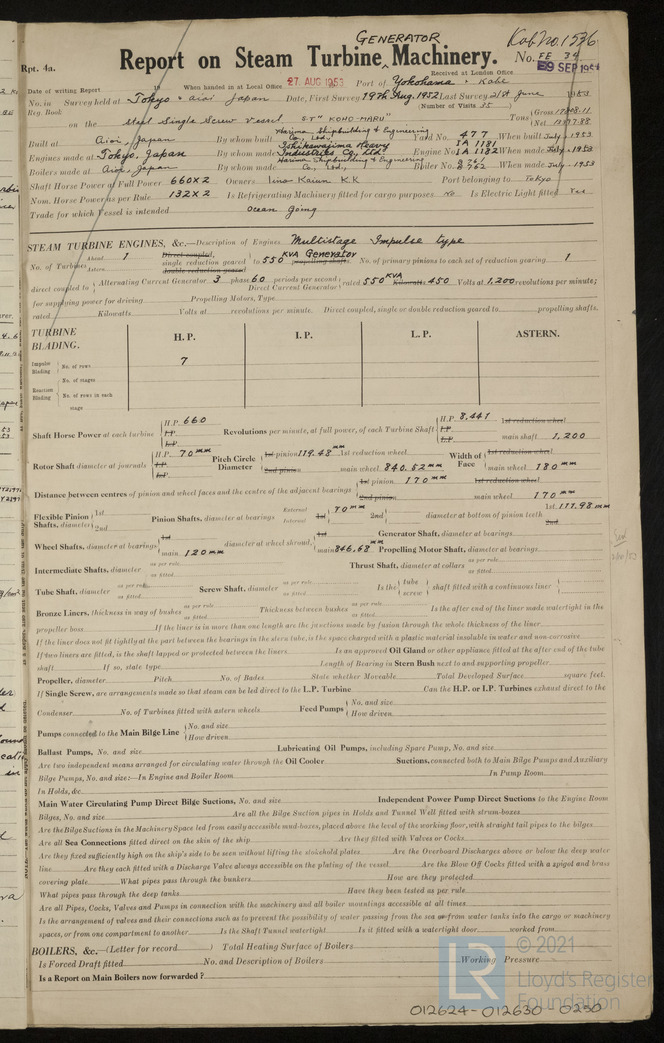 Rpt. 4a.
GENERATOR
Kob. No. 1536
Report on Steam Turbine Machinery.
No. FE
Received at London Office
9 SEP 195
Date of writing Report 19 When handed in at Local Office 27 AUG 1953 Port of Yokohama & Kobe
No. in Survey held at Tokyo & Aioi Japan Date, First Survey 19th Aug. 1952 Last Survey 21st June 1953
Reg. Book (Number of Visits 35)
on the Steel Single Screw Vessel S.T. "KOHO-MARU" Tons Gross
Net
Built at Aioi, Japan By whom built Harima Shipbuilding & Engineering Co., Ltd. Yard No. 477 When built July 1953
Engines made at Tokyo, Japan By whom made Ishikawajima Heavy Industries Co., Ltd. Engine No. IA 1181 IA 1182 When made July 1953
Boilers made at Aioi, Japan By whom made Harima Shipbuilding & Engineering Co., Ltd. Boiler No. When made July 1953
Shaft Horse Power at Full Power 660 x 2 Owners Iino Kaiun K.K Port belonging to Tokyo
Nom. Horse Power as per Rule 132 x 2 Is Refrigerating Machinery fitted for cargo purposes No Is Electric Light fitted Yes
Trade for which Vessel is intended Ocean going
STEAM TURBINE ENGINES, &c.—Description of Engines Multistage Impulse type
No. of Turbines Ahead 1 Direct coupled, single reduction geared to 550 KVA Generator propelling shafts. No. of primary pinions to each set of reduction gearing 1
Astern double reduction geared
direct coupled to Alternating Current Generator 3 phase 60 periods per second rated 550 KVA Kilowatts 450 Volts at 1,200 revolutions per minute;
Direct Current Generator
for supplying power for driving Propelling Motors, Type
rated Kilowatts Volts at revolutions per minute. Direct coupled, single or double reduction geared to propelling shafts.
TURBINE BLADING. H.P. I.P. L.P. ASTERN.
Impulse Blading No. of rows 7
Reaction Blading No. of stages
No. of rows in each stage
Shaft Horse Power at each turbine H.P. 660 I.P. L.P. Revolutions per minute, at full power, of each Turbine Shaft H.P. 8,441 I.P. L.P. 1st reduction wheel main shaft 1,200
Rotor Shaft diameter at journals H.P. 70 mm I.P. L.P. Pitch Circle Diameter 1st pinion 119.48 mm 1st reduction wheel 2nd pinion main wheel 840.52 mm Width of Face 1st reduction wheel main wheel 180 mm
Distance between centres of pinion and wheel faces and the centre of the adjacent bearings 1st pinion 170 mm 2nd pinion 1st reduction wheel main wheel 170 mm
Flexible Pinion Shafts, diameter 1st 2nd Pinion Shafts, diameter at bearings External Internal 1st 70 mm 2nd diameter at bottom of pinion teeth 1st 111.98 mm 2nd
Wheel Shafts, diameter at bearings 1st main 120 mm diameter at wheel shroud, 1st main 846.68 mm Generator Shaft, diameter at bearings
Propelling Motor Shaft, diameter at bearings
Intermediate Shafts, diameter as per rule as fitted Thrust Shaft, diameter at collars as per rule as fitted
Tube Shaft, diameter as per rule as fitted Screw Shaft, diameter as per rule as fitted Is the tube screw shaft fitted with a continuous liner
Bronze Liners, thickness in way of bushes as per rule as fitted Thickness between bushes as per rule as fitted Is the after end of the liner made watertight in the
propeller boss If the liner is in more than one length are the junctions made by fusion through the whole thickness of the liner
If the liner does not fit tightly at the part between the bearings in the stern tube, is the space charged with a plastic material insoluble in water and non-corrosive
If two liners are fitted, is the shaft lapped or protected between the liners Is an approved Oil Gland or other appliance fitted at the after end of the tube
shaft If so, state type Length of Bearing in Stern Bush next to and supporting propeller
Propeller, diameter Pitch No. of Blades State whether Moveable Total Developed Surface square feet.
If Single Screw, are arrangements made so that steam can be led direct to the L.P. Turbine Can the H.P. or I.P. Turbines exhaust direct to the
Condenser No. of Turbines fitted with astern wheels Feed Pumps No. and size How driven
Pumps connected to the Main Bilge Line No. and size How driven
Ballast Pumps, No. and size Lubricating Oil Pumps, including Spare Pump, No. and size
Are two independent means arranged for circulating water through the Oil Cooler Suctions, connected both to Main Bilge Pumps and Auxiliary
Bilge Pumps, No. and size:—In Engine and Boiler Room In Pump Room
In Holds, &c.
Main Water Circulating Pump Direct Bilge Suctions, No. and size Independent Power Pump Direct Suctions to the Engine Room
Bilges, No. and size Are all the Bilge Suction pipes in Holds and Tunnel Well fitted with strum-boxes
Are the Bilge Suctions in the Machinery Space led from easily accessible mud-boxes, placed above the level of the working floor, with straight tail pipes to the bilges
Are all Sea Connections fitted direct on the skin of the ship Are they fitted with Valves or Cocks
Are they fixed sufficiently high on the ship's side to be seen without lifting the stokehold plates Are the Overboard Discharges above or below the deep water
line Are they each fitted with a Discharge Valve always accessible on the plating of the vessel Are the Blow Off Cocks fitted with a spigot and brass
covering plate What pipes pass through the bunkers How are they protected
What pipes pass through the deep tanks Have they been tested as per rule
Are all Pipes, Cocks, Valves and Pumps in connection with the machinery and all boiler mountings accessible at all times
Is the arrangement of valves and their connections such as to prevent the possibility of water passing from the sea or from water tanks into the cargo or machinery
spaces, or from one compartment to another Is the Shaft Tunnel watertight Is it fitted with a watertight door worked from
BOILERS, &c.—(Letter for record ) Total Heating Surface of Boilers
Is Forced Draft fitted No. and Description of Boilers Working Pressure
Is a Report on Main Boilers now forwarded?
LR
© 2021
Lloyd's Register
Foundation
012624-012630-0250